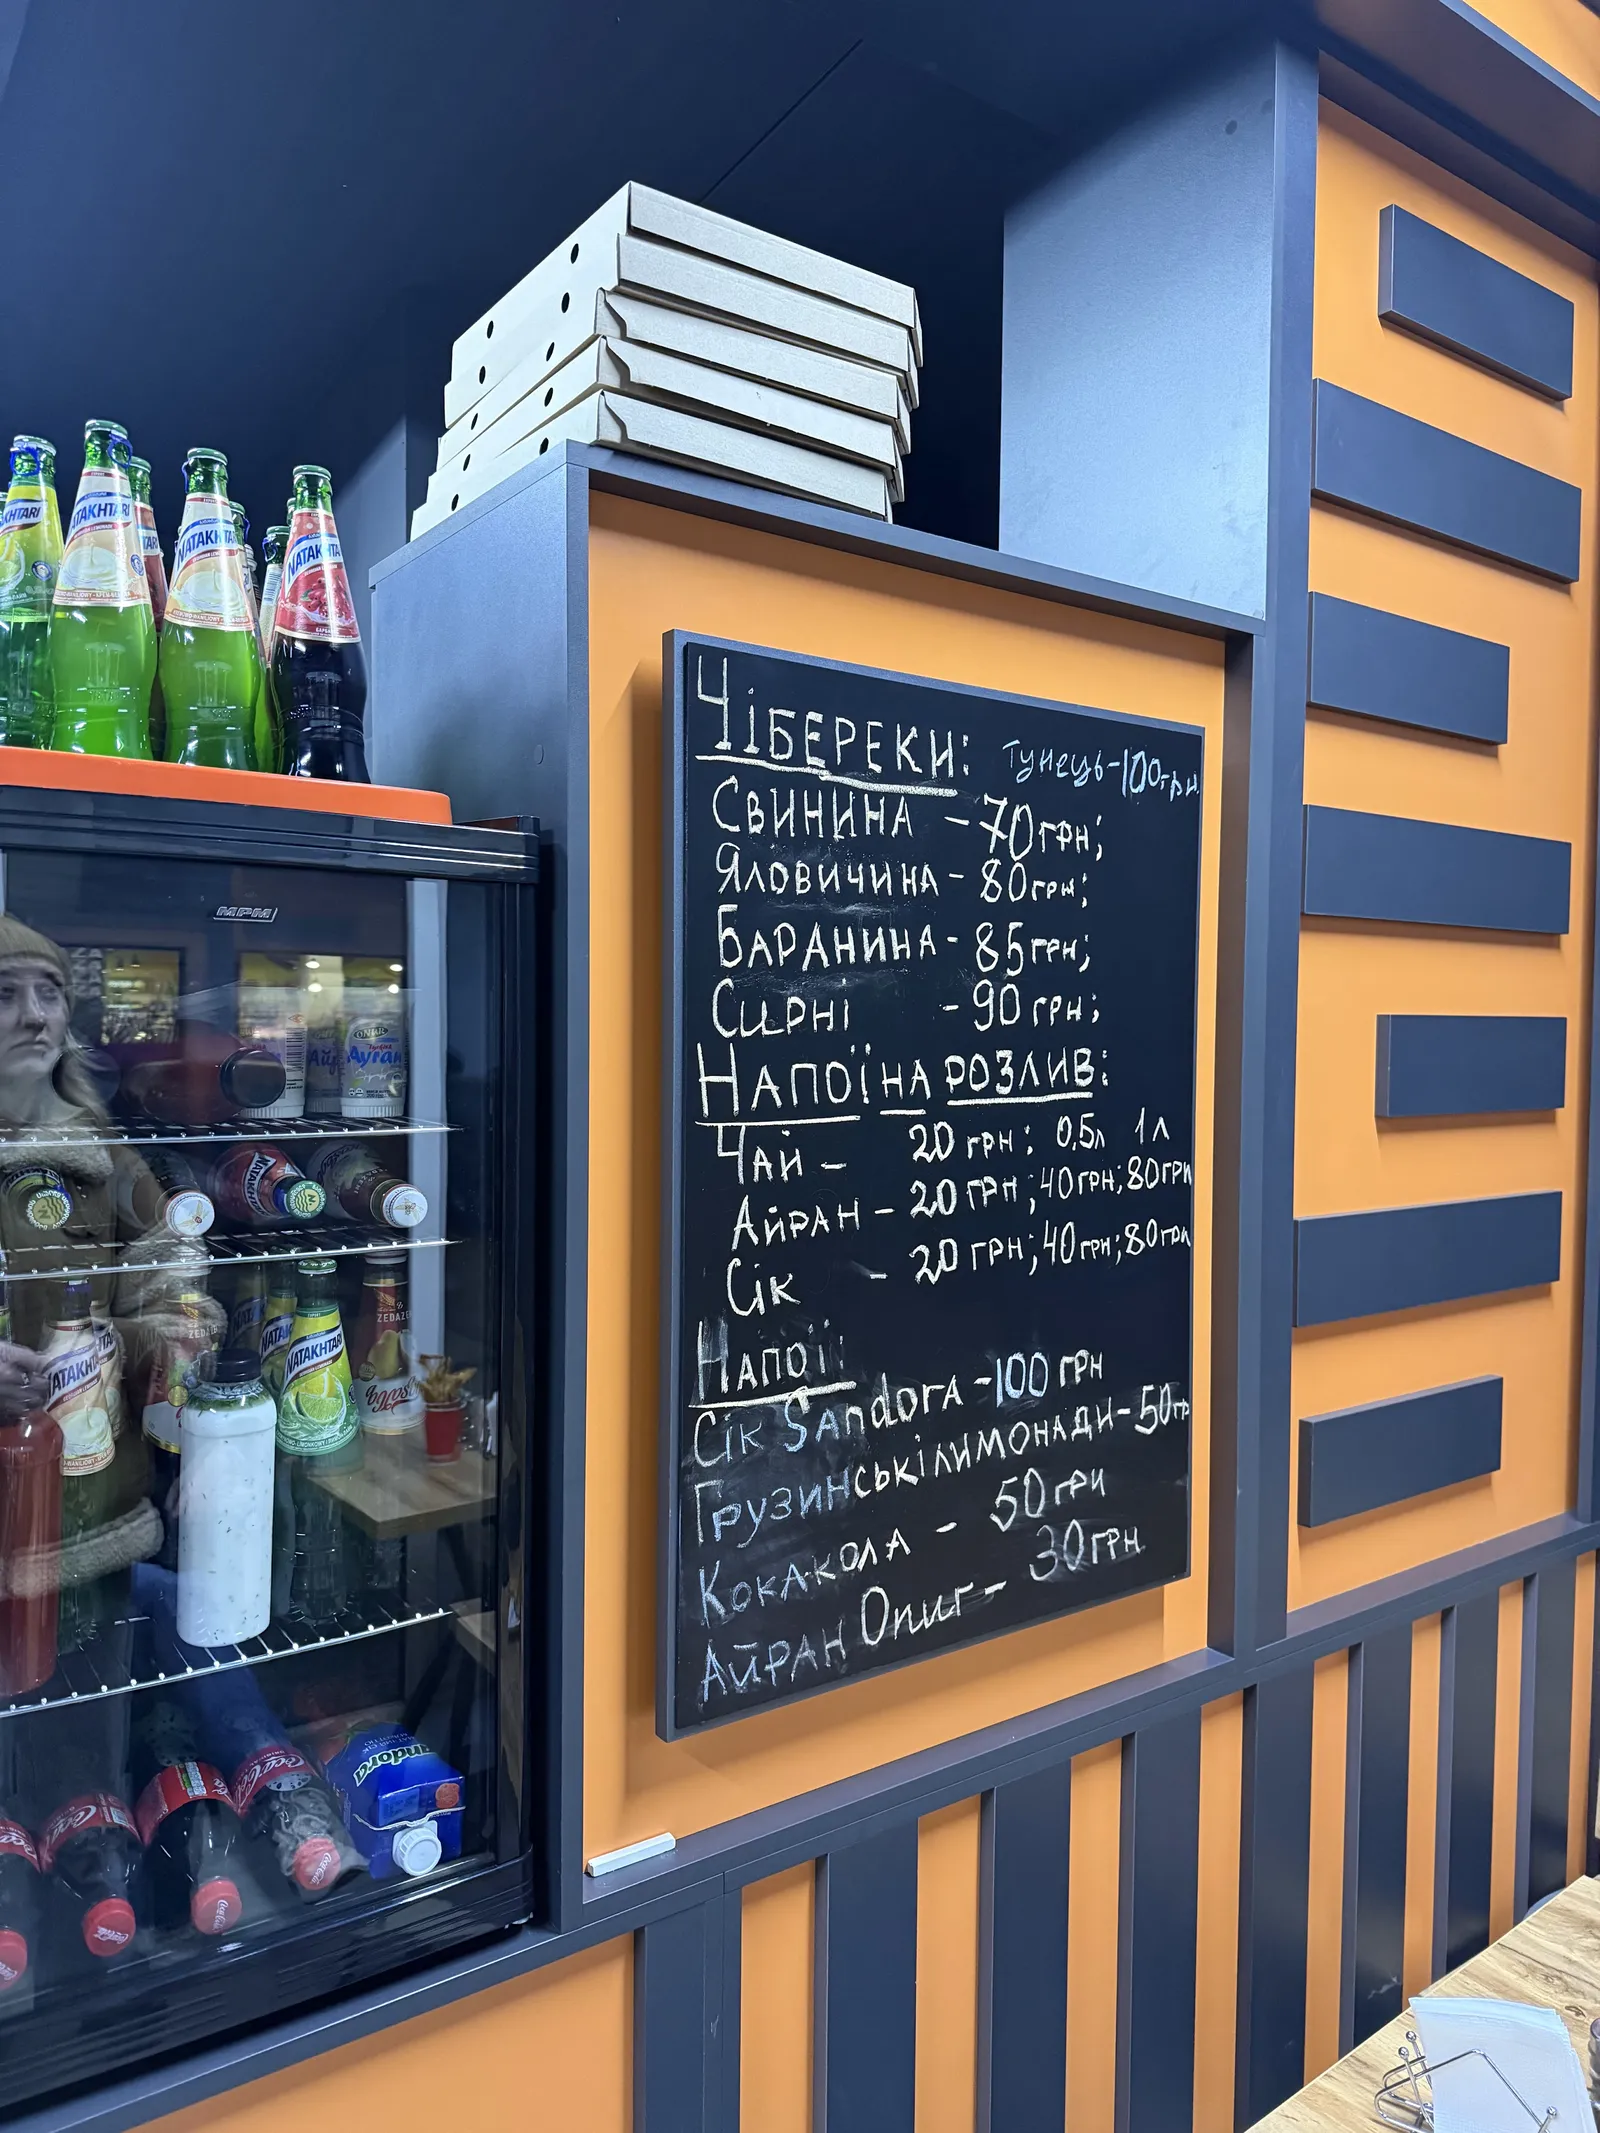 ЧІБЕРЕКИ: Тунець-100грн.
Свинина - 70 грн;
Яловичина - 80грн;
Баранина - 85грн;
Сирні - 90 грн;
Напої на розлив:
0,5л 1л
Чай - 20 грн;
Айран - 20 грн; 40грн; 80грн
Сік - 20 грн; 40грн; 80грн
Напої:
Сік Sandora - 100 грн
Грузинські лимонади - 50гр
Кока-кола - 50 грн
Айран Опиг - 30 грн
NATAKHTARI
NATAKHTARI
NATAKHTARI
MPM
Ayran
NATAKHTARI
ZEDAZENI
NATAKHTARI
Coca-Cola
Sandora